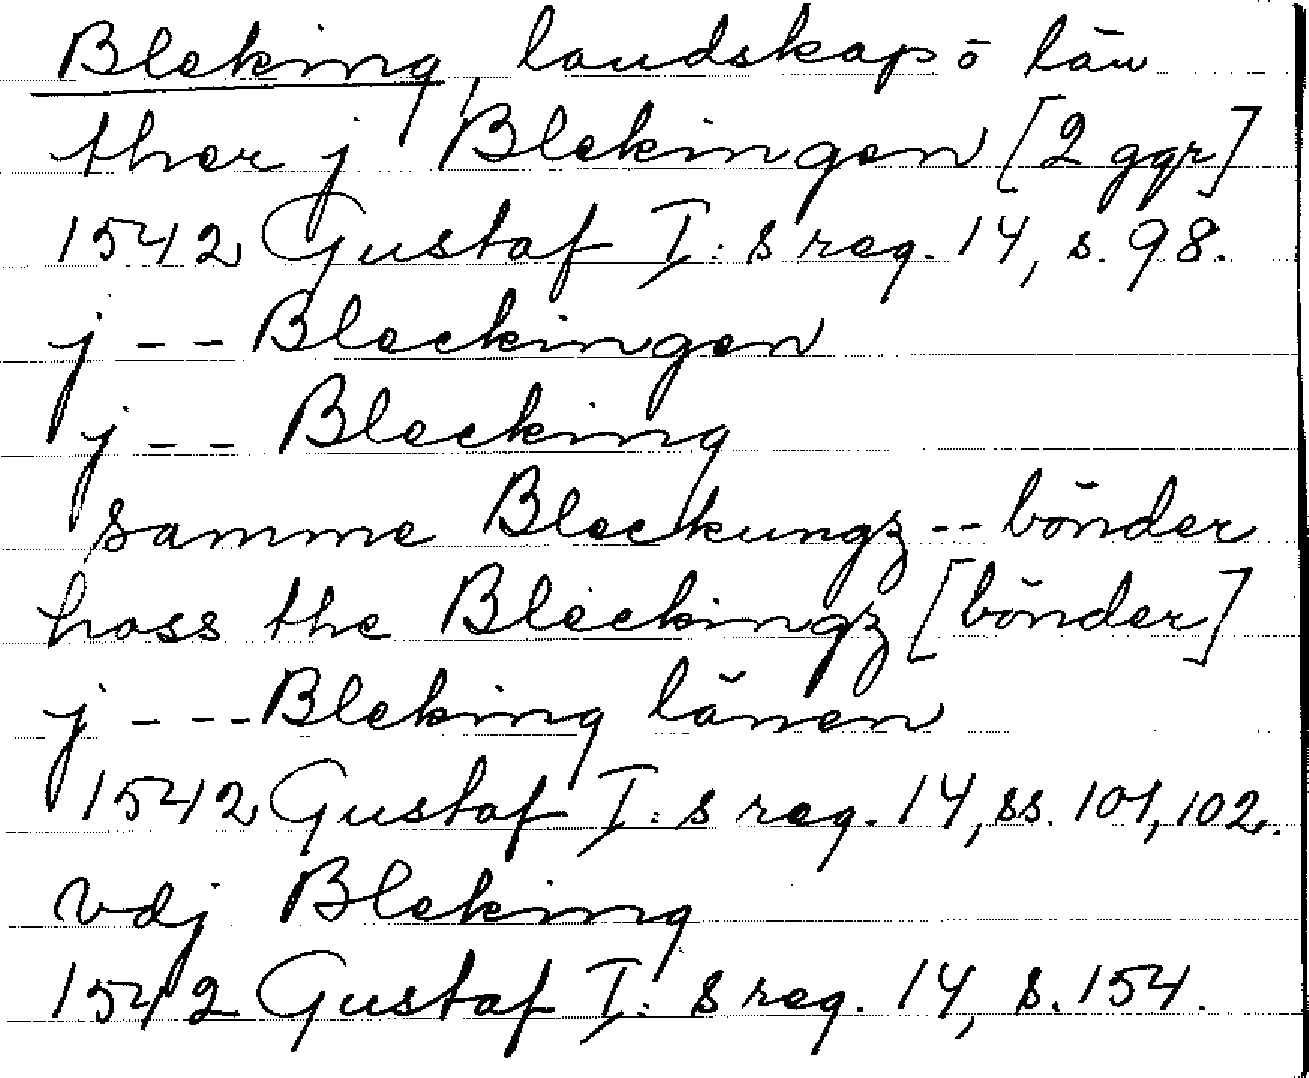 Bleking, landskap o län
ther j Blekingen [2 ggr]
1542 Gustaf I:s reg. 14, s. 98.
j -- Bleckingen
j -- Blecking
samme Bleckungz -- bönder
hoss the Bleckingz [bönder]
j --- Bleking länen
1542 Gustaf I:s reg. 14, ss. 101, 102.
vdj Bleking
1542 Gustaf I:s reg. 14, s. 154.